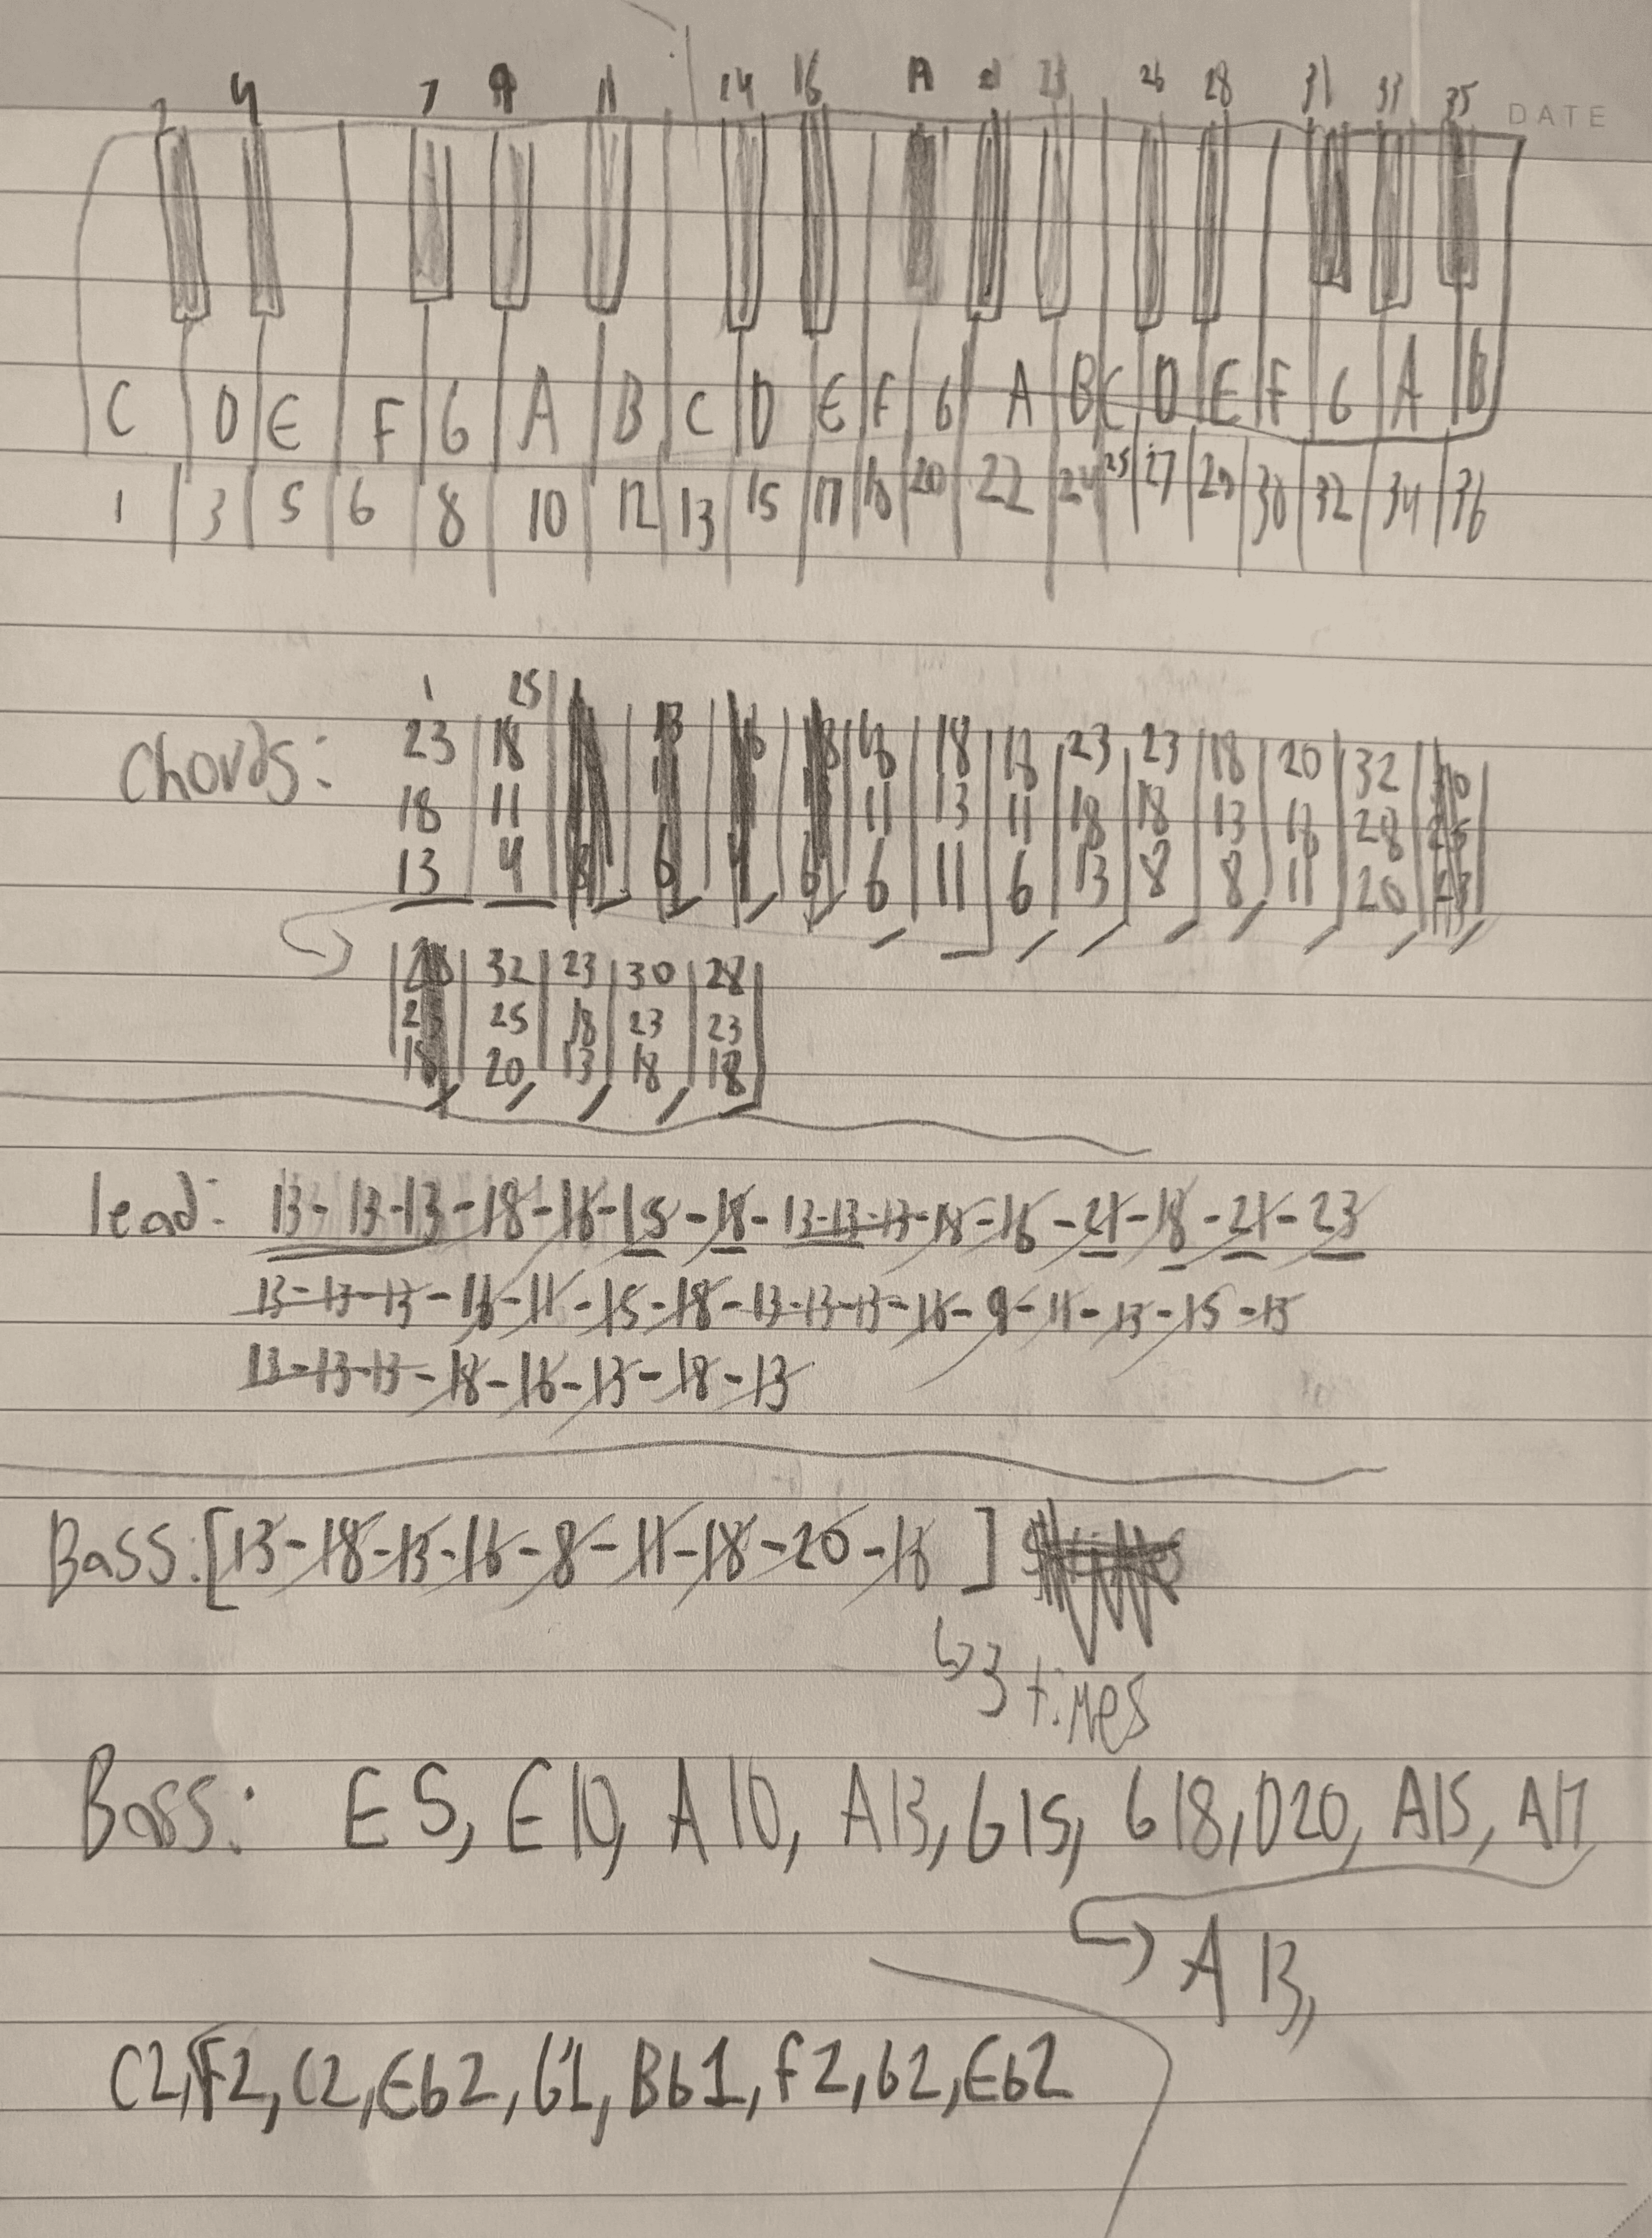 2 4 7 9 11 14 16 19 21 23 26 28 31 33 35
DATE
C D E F G A B C D E F G A B C D E F G A B
1 3 5 6 8 10 12 13 15 17 18 20 22 24 25 27 29 30 32 34 36
1 25
Chords: 23 18 18 18 23 23 18 20 32
18 11 11 13 11 18 18 13 18 28
13 4 6 11 6 13 8 8 11 20
32 23 30 28
25 18 23 23
20 13 18 18
lead: 13-13-13-18-16-15-18-13-13-13-18-16-21-18-21-23
13-13-13-16-11-15-18-13-13-13-16-9-11-13-15-15
13-13-13-18-16-13-18-13
Bass: [13-18-13-16-8-11-18-20-16]
↳3 times
Bass: E5, E10, A10, A13, G15, G18, D20, A15, A17
A13,
C2, F2, C2, Eb2, G1, Bb1, F2, G2, Eb2